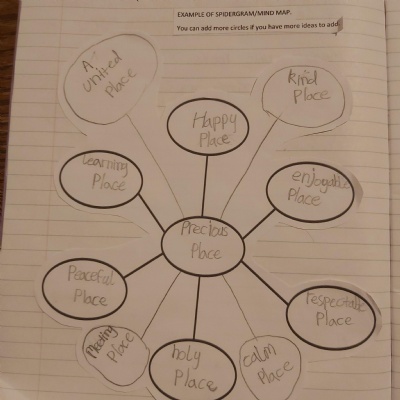 EXAMPLE OF SPIDERGRAM/MIND MAP.
You can add more circles if you have more ideas to add
A
united
Place
kind
Place
Happy
Place
Learning
Place
enjoyable
Place
Precious
Place
Peaceful
Place
respectable
Place
Meeting
Place
holy
Place
calm
Place